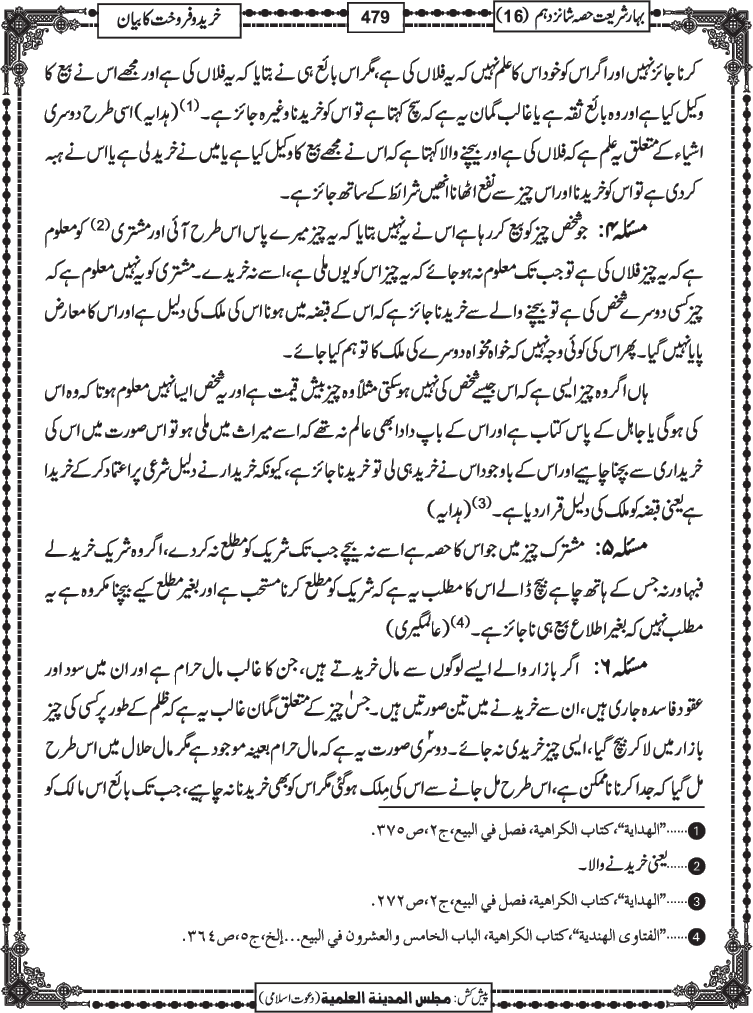 بہار شریعت حصہ شانزدہم (16)
479
خرید و فروخت کا بیان
کرنا جائز نہیں اور اگر اس کو خود اس کا علم نہیں کہ یہ فلاں کی ہے، مگر اس بائع ہی نے بتایا کہ یہ فلاں کی ہے اور مجھے اس نے بیع کا
وکیل کیا ہے اور وہ بائع ثقہ ہے یا غالب گمان یہ ہے کہ سچ کہتا ہے تو اس کو خریدنا وغیرہ جائز ہے۔(1) (ہدایہ) اسی طرح دوسری
اشیاء کے متعلق یہ علم ہے کہ فلاں کی ہے اور بیچنے والا کہتا ہے کہ اس نے مجھے بیع کا وکیل کیا ہے یا میں نے خرید لی ہے یا اس نے ہبہ
کر دی ہے تو اس کو خریدنا اور اس چیز سے نفع اٹھانا انھیں شرائط کے ساتھ جائز ہے۔
مسئلہ ۴: جو شخص چیز کو بیع کر رہا ہے اس نے یہ نہیں بتایا کہ یہ چیز میرے پاس اس طرح آئی اور مشتری(2) کو معلوم
ہے کہ یہ چیز فلاں کی ہے تو جب تک معلوم نہ ہو جائے کہ یہ چیز اس کو یوں ملی ہے، اسے نہ خریدے۔ مشتری کو یہ نہیں معلوم ہے کہ
چیز کسی دوسرے شخص کی ہے تو بیچنے والے سے خریدنا جائز ہے کہ اس کے قبضہ میں ہونا اس کی ملک کی دلیل ہے اور اس کا معارض
پایا نہیں گیا۔ پھر اس کی کوئی وجہ نہیں کہ خواہ مخواہ دوسرے کی ملک کا توہم کیا جائے۔
ہاں اگر وہ چیز ایسی ہے کہ اس جیسے شخص کی نہیں ہو سکتی مثلاً وہ چیز بیش قیمت ہے اور یہ شخص ایسا نہیں معلوم ہوتا کہ وہ اس
کی ہوگی یا جاہل کے پاس کتاب ہے اور اس کے باپ دادا بھی عالم نہ تھے کہ اسے میراث میں ملی ہو تو اس صورت میں اس کی
خریداری سے بچنا چاہیے اور اس کے باوجود اس نے خرید ہی لی تو خریدنا جائز ہے، کیونکہ خریدار نے دلیل شرعی پر اعتماد کر کے خریدا
ہے یعنی قبضہ کو ملک کی دلیل قرار دیا ہے۔(3) (ہدایہ)
مسئلہ ۵: مشترک چیز میں جو اس کا حصہ ہے اسے نہ بیچے جب تک شریک کو مطلع نہ کر دے، اگر وہ شریک خرید لے
فبہا ورنہ جس کے ہاتھ چاہے بیچ ڈالے اس کا مطلب یہ ہے کہ شریک کو مطلع کرنا مستحب ہے اور بغیر مطلع کیے بیچنا مکروہ ہے یہ
مطلب نہیں کہ بغیر اطلاع بیع ہی ناجائز ہے۔(4) (عالمگیری)
مسئلہ ۶: اگر بازار والے ایسے لوگوں سے مال خریدتے ہیں، جن کا غالب مال حرام ہے اور ان میں سود اور
عقود فاسدہ جاری ہیں، ان سے خریدنے میں تین صورتیں ہیں۔ جس۱ چیز کے متعلق گمان غالب یہ ہے کہ ظلم کے طور پر کسی کی چیز
بازار میں لا کر بیچ گیا، ایسی چیز خریدی نہ جائے۔ دوسری۲ صورت یہ ہے کہ مال حرام بعینہٖ موجود ہے مگر مال حلال میں اس طرح
مل گیا کہ جدا کرنا ناممکن ہے، اس طرح مل جانے سے اس کی مِلک ہوگئی مگر اس کو بھی خریدنا نہ چاہیے، جب تک بائع اس مالک کو
1 ......”الھدایة“، کتاب الکراھیة، فصل في البیع، ج۲، ص۳۷۵.
2 ......یعنی خریدنے والا۔
3 ......”الھدایة“، کتاب الکراھیة، فصل في البیع، ج۲، ص۲۷۲.
4 ......”الفتاوی الھندیة“، کتاب الکراھیة، الباب الخامس والعشرون في البیع...إلخ، ج۵، ص۳۶۴.
پیش کش: مجلس المدینة العلمیة (دعوت اسلامی)